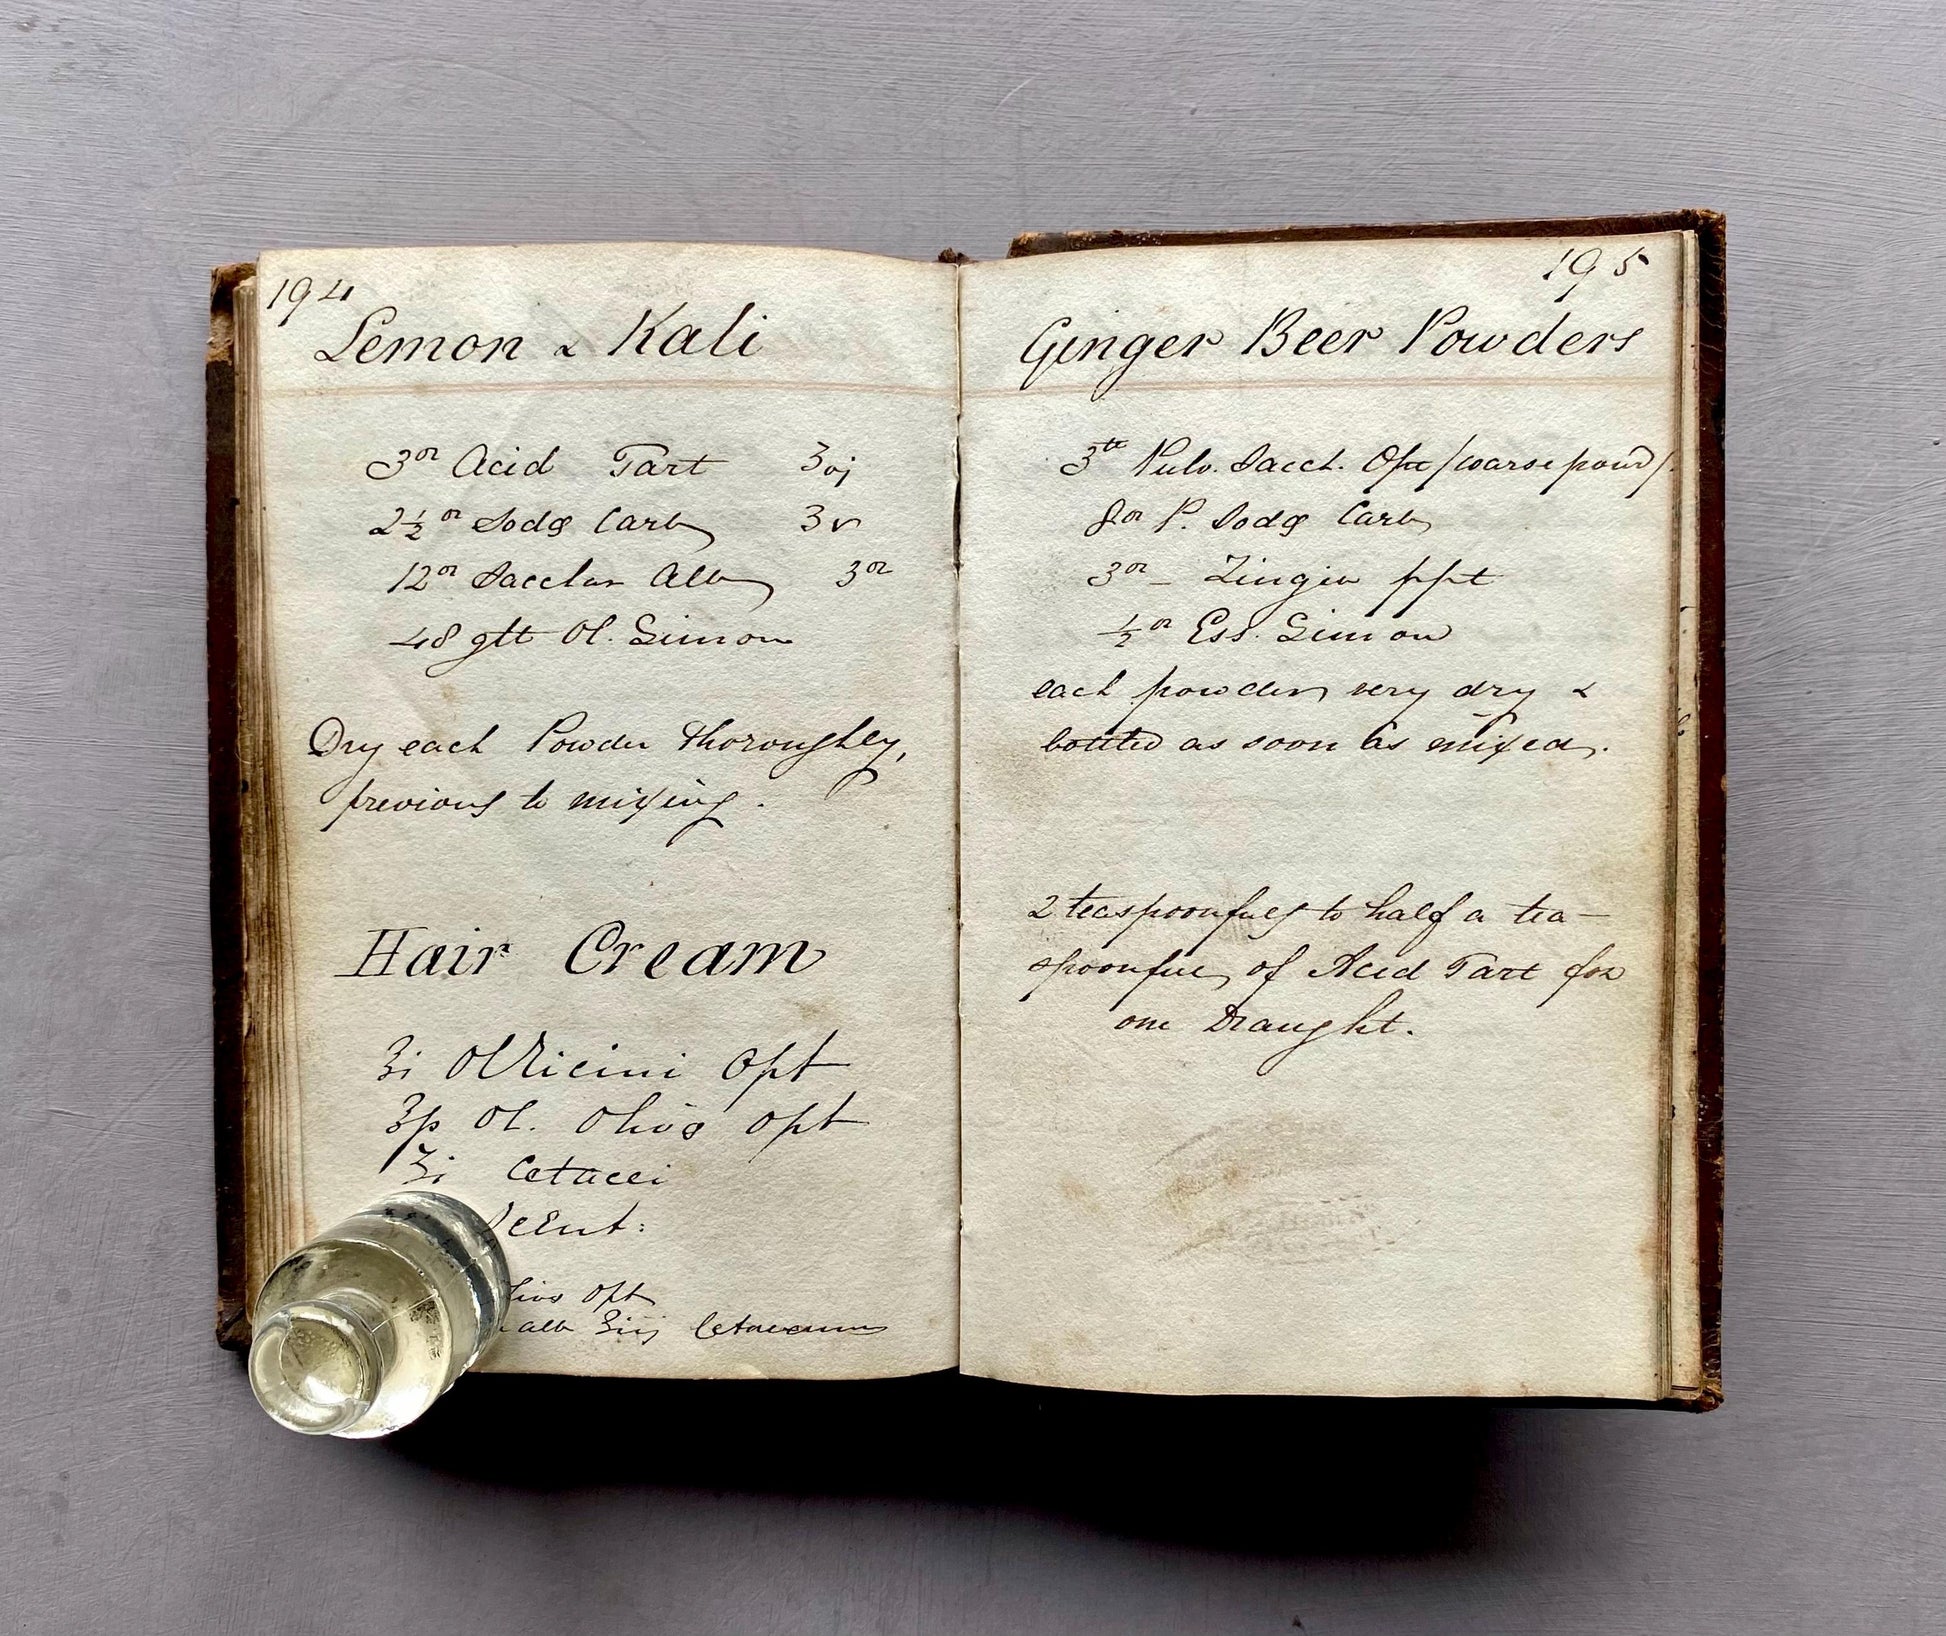 194
Lemon & Kali
3oz Acid Tart ʒvj
2½oz Sodæ Carb ʒv
12oz Sacchar Alb 3oz
48 gtt Ol. Limon
Dry each Powder thoroughly,
previous to mixing.
Hair Cream
℥i Ol Ricini Opt
Ol. Olivæ opt
ʒi Cetacei
Scent:
opt
alb ʒiij Cetaceum
195
Ginger Beer Powders
3lb Pulv. Sacch. Opt (coarse powd).
8oz P. Sodæ Carb
3oz - Zingib ppt
½oz Ess. Limon
each powder very dry &
bottled as soon as mixed.
2 teaspoonfuls to half a tea-
spoonful of Acid Tart for
one Draught.